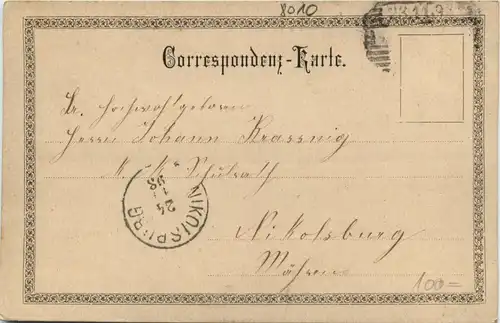 8010
23.11.9
Correspondenz-Karte.
Sr. Hochwohlgeboren
Herrn Johann Krassnig
K. K. Schulrath
NIKOLSBURG
24
11
98
Nikolsburg
Mähren
100=